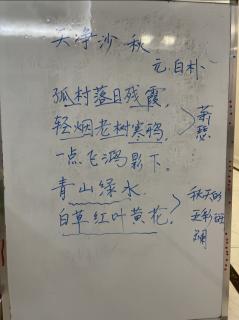 天净沙 秋
元.白朴
孤村落日残霞,
轻烟老树寒鸦,
一点飞鸿影下.
青山绿水.
白草红叶黄花.
萧瑟
秋天的
五彩斑
斓